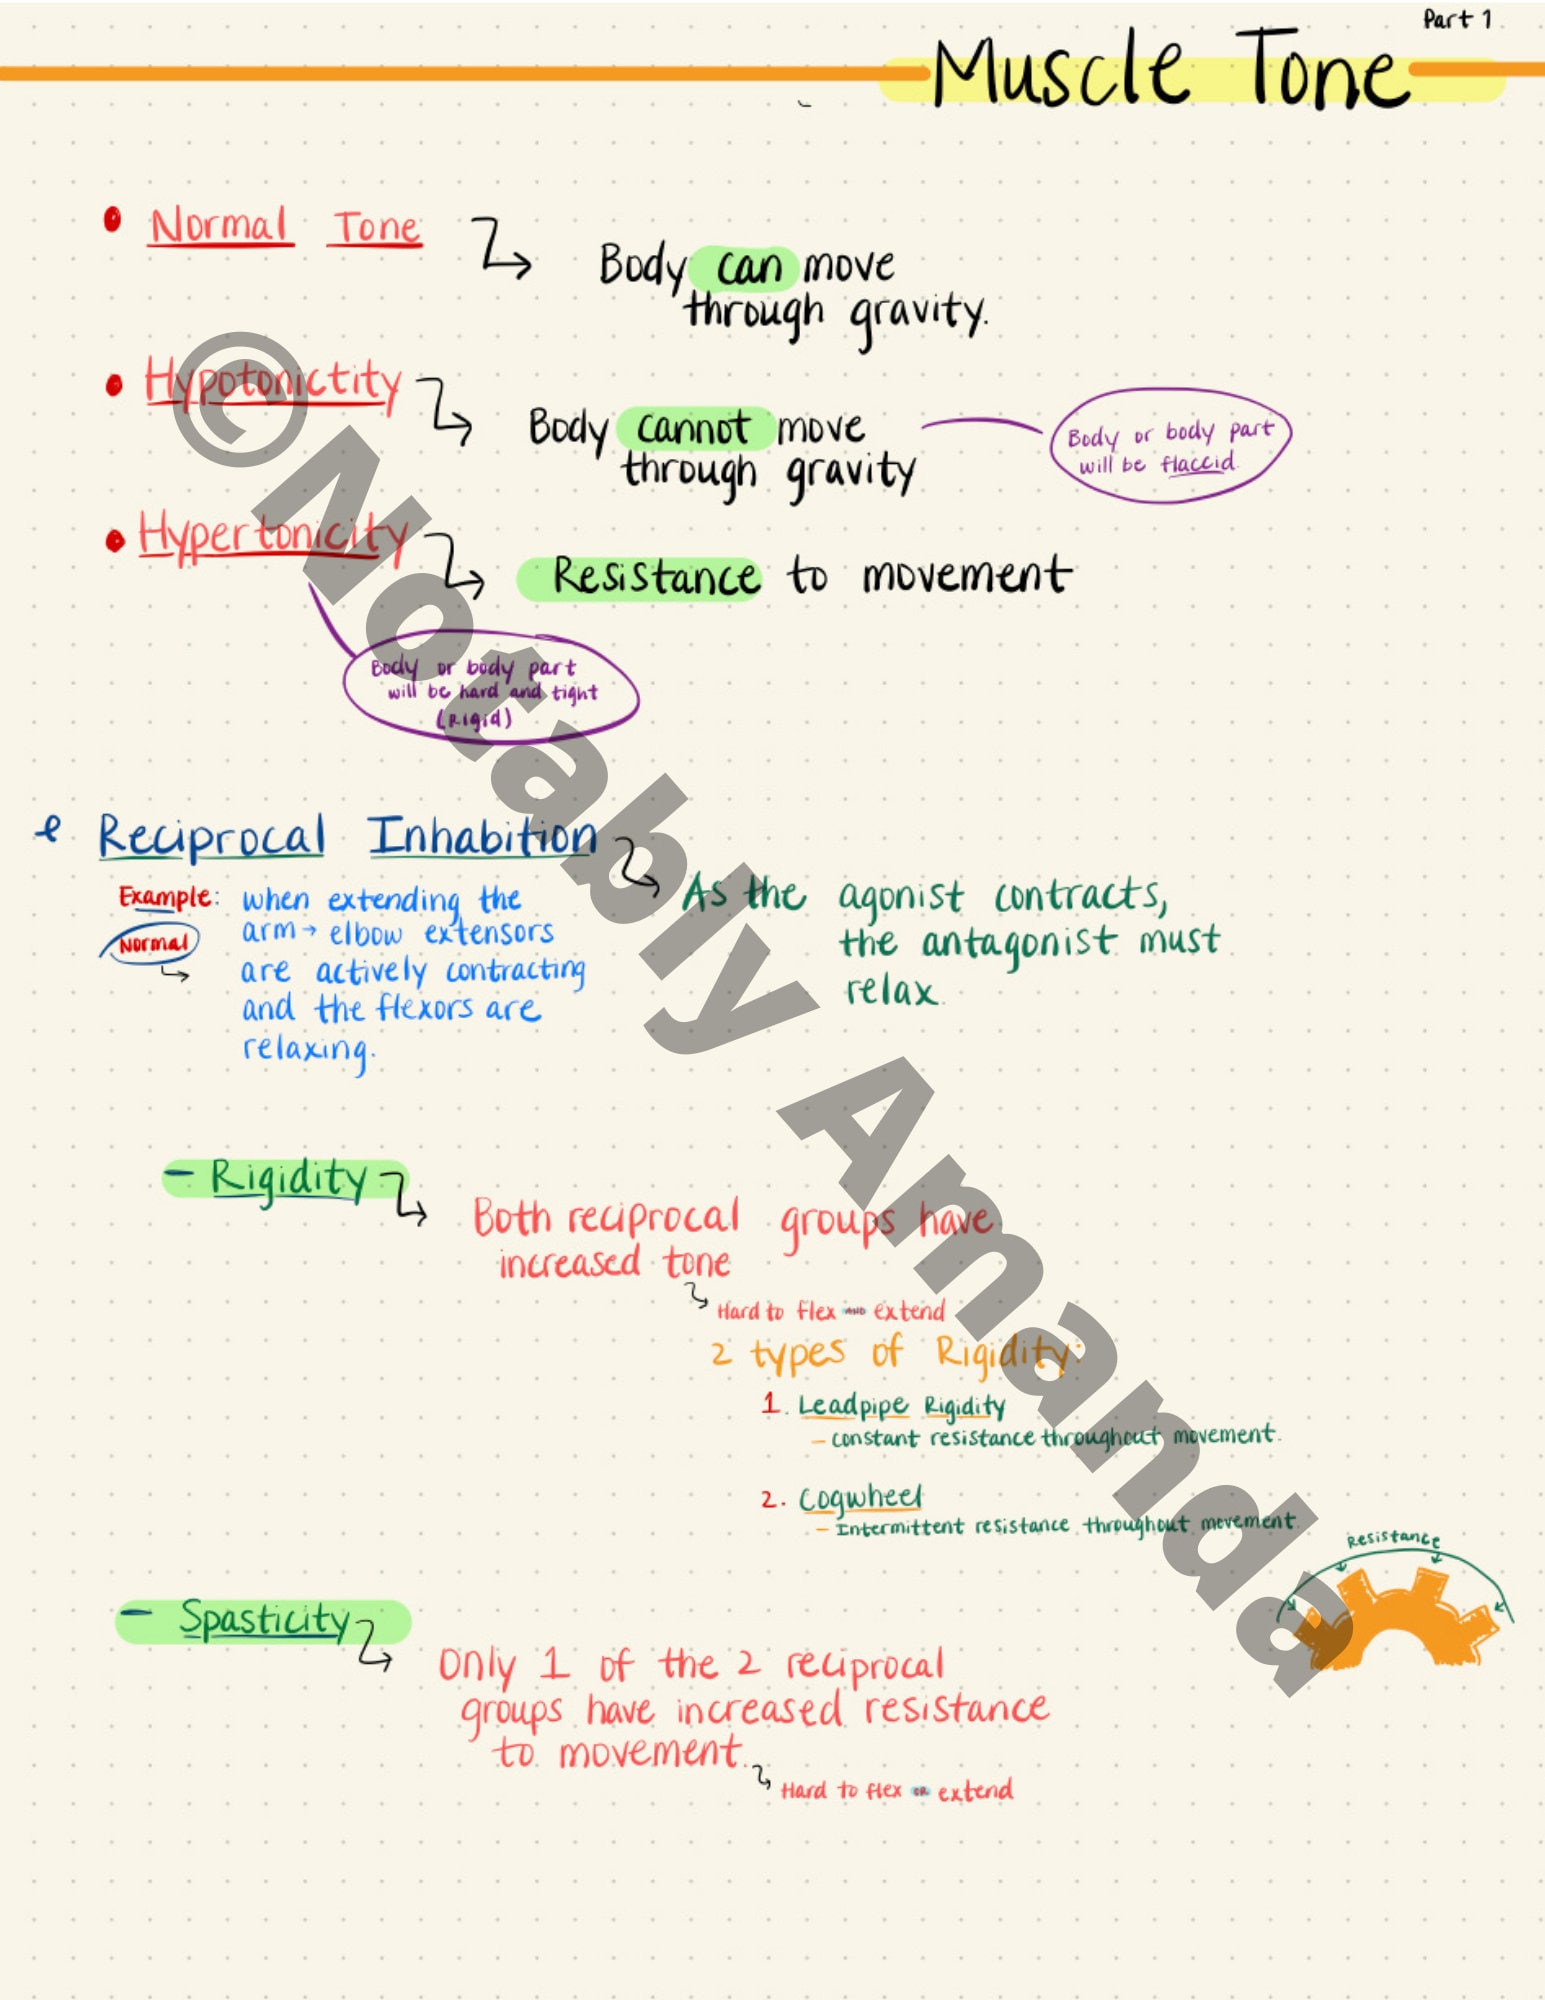 Part 1
Muscle Tone
• Normal Tone
Body can move
through gravity.
• Hypotonictity
Body cannot move
through gravity
Body or body part
will be flaccid.
• Hypertonicity
Resistance to movement
Body or body part
will be hard and tight
(Rigid)
Reciprocal Inhabition
As the agonist contracts,
the antagonist must
relax.
Example:
Normal
when extending the
arm → elbow extensors
are actively contracting
and the flexors are
relaxing.
- Rigidity
Both reciprocal groups have
increased tone
Hard to flex AND extend
2 types of Rigidity:
1. Leadpipe Rigidity
- constant resistance throughout movement.
2. Cogwheel
- Intermittent resistance throughout movement.
Resistance
- Spasticity
Only 1 of the 2 reciprocal
groups have increased resistance
to movement.
Hard to flex OR extend
©Notably Amanda